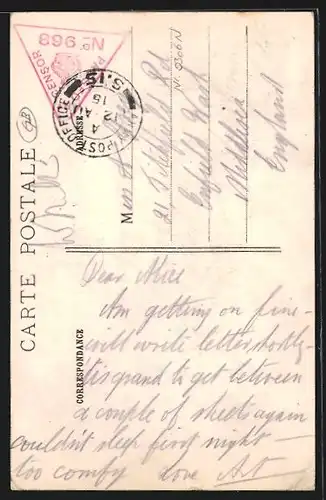 PASSED CENSOR
No 968
ARMY POST OFFICE
S.15
4
12 AU
15
CARTE POSTALE
CORRESPONDANCE
ADRESSE
Nr. 0306N
Miss
21 Titchfield Rd
Enfield Wash
Middlesex
England
Dear Alice
Am getting on fine –
will write letter shortly –
tis grand to get between
a couple of sheets again
couldn't sleep first night –
too comfy love Art